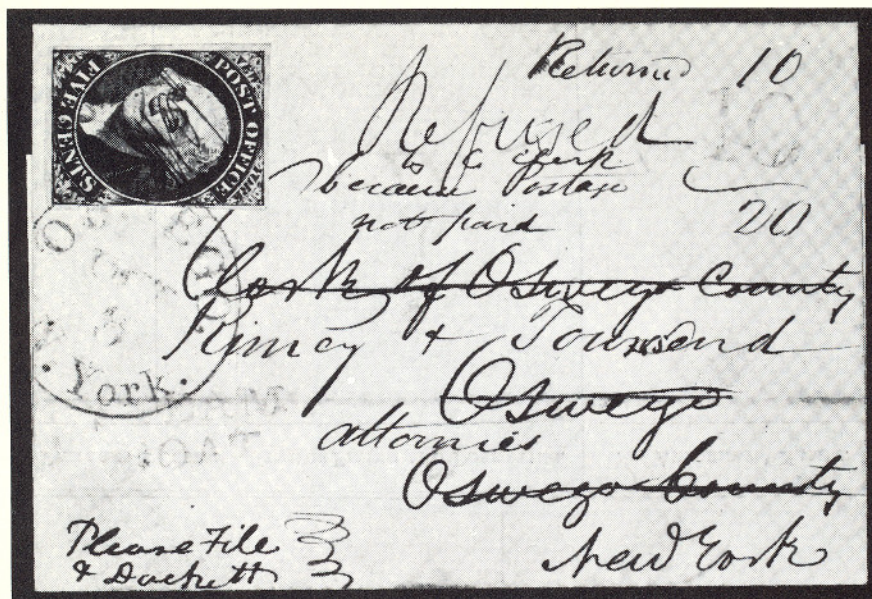 POST OFFICE
FIVE CENTS
Returned 10
Refused 10
by Clerk
because Postage
not paid 20
Clerk of Oswego County
Kinney & Townsend
Oswego
attornies
Oswego County
New York
Please File
& Dockett
OSWEGO
N. York.